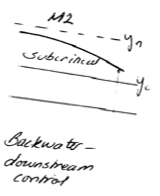 M2
yn
subcritical
yc
Backwater-
downstream
control